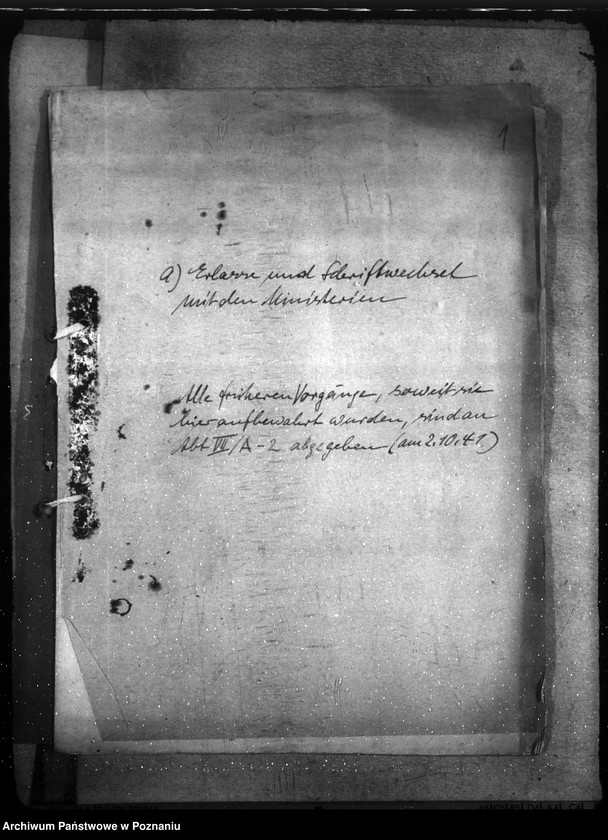 1
a) Erlasse und Schriftwechsel
mit den Ministerien
Alle früheren Vorgänge, soweit sie
hier aufbewahrt wurden, sind an
Abt III/A-2 abgegeben (am 2.10.41.)
Archiwum Państwowe w Poznaniu